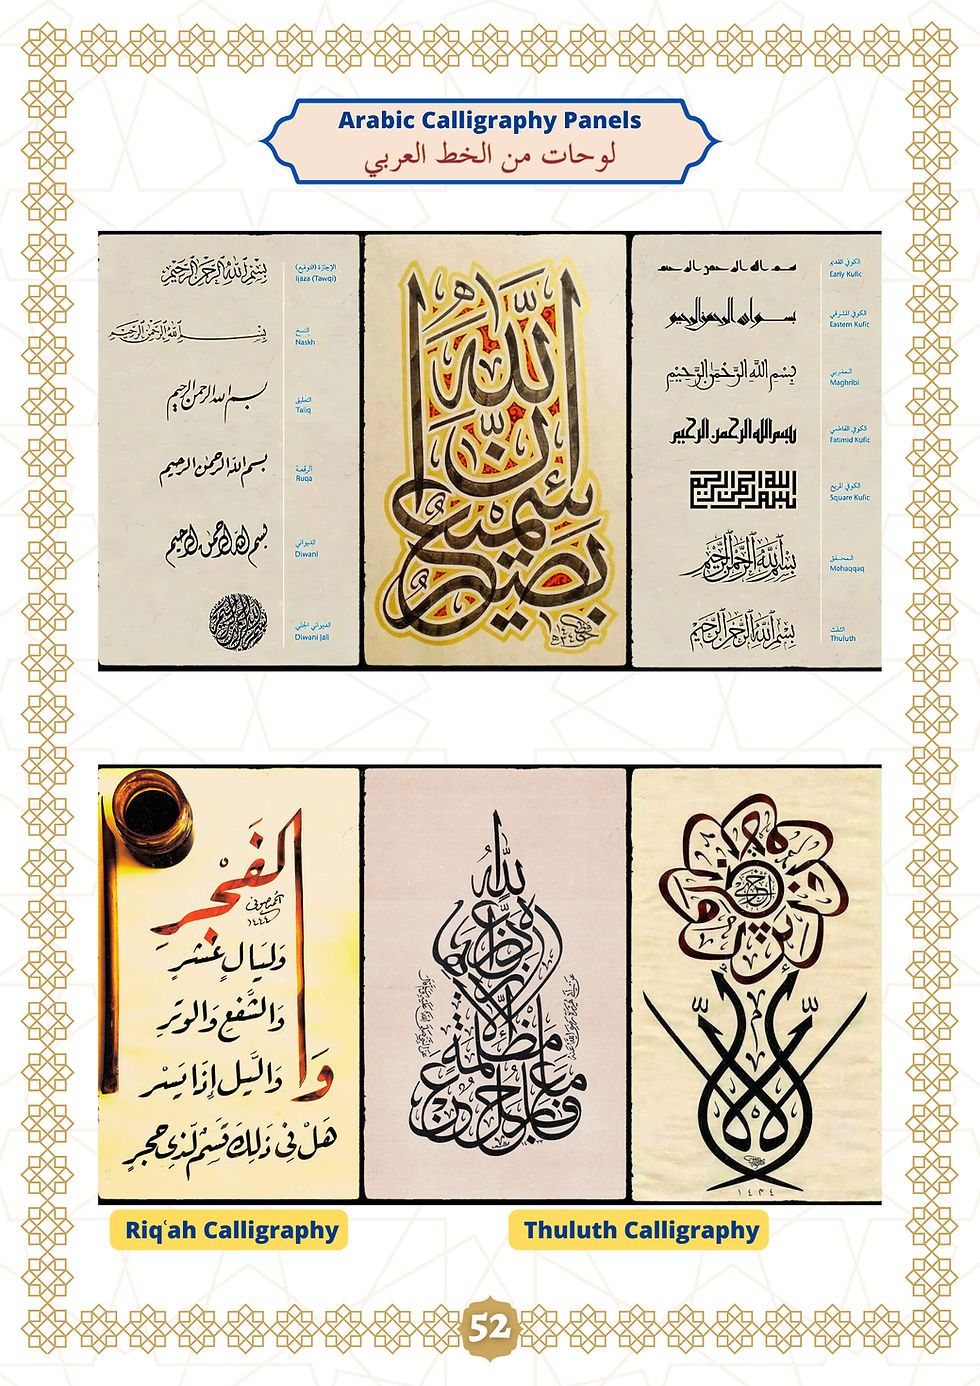 Arabic Calligraphy Panels
لوحات من الخط العربي
بسم الله الرحمن الرحيم
الإجازة (التوقيع)
Ijaza (Tawqi)
بسم الله الرحمن الرحيم
النسخ
Naskh
بسم الله الرحمن الرحيم
التعليق
Taliq
بسم الله الرحمن الرحيم
الرقعة
Ruqa
بسم الله الرحمن الرحيم
الديواني
Diwani
الديواني الجلي
Diwani Jali
إن الله سميع بصير
بسم الله الرحمن الرحيم
الكوفي القديم
Early Kufic
بسم الله الرحمن الرحيم
الكوفي المشرقي
Eastern Kufic
بِسْمِ اللَّهِ الرَّحْمَنِ الرَّحِيمِ
المغربي
Maghribi
بسم الله الرحمن الرحيم
الكوفي الفاطمي
Fatimid Kufic
بسم الله الرحمن الرحيم
الكوفي المربع
Square Kufic
بسم الله الرحمن الرحيم
المحقق
Mohaqqaq
بسم الله الرحمن الرحيم
الثلث
Thuluth
وَالفَجْرِ
١٤٤٤
وَلَيَالٍ عَشْرٍ
وَالشَّفْعِ وَالوَتْرِ
وَالَّيلِ إِذَا يَسْرِ
هَلْ فِي ذَلِكَ قَسَمٌ لِّذِي حِجرٍ
الله
١٤٣٤
Riqʿah Calligraphy
Thuluth Calligraphy
52